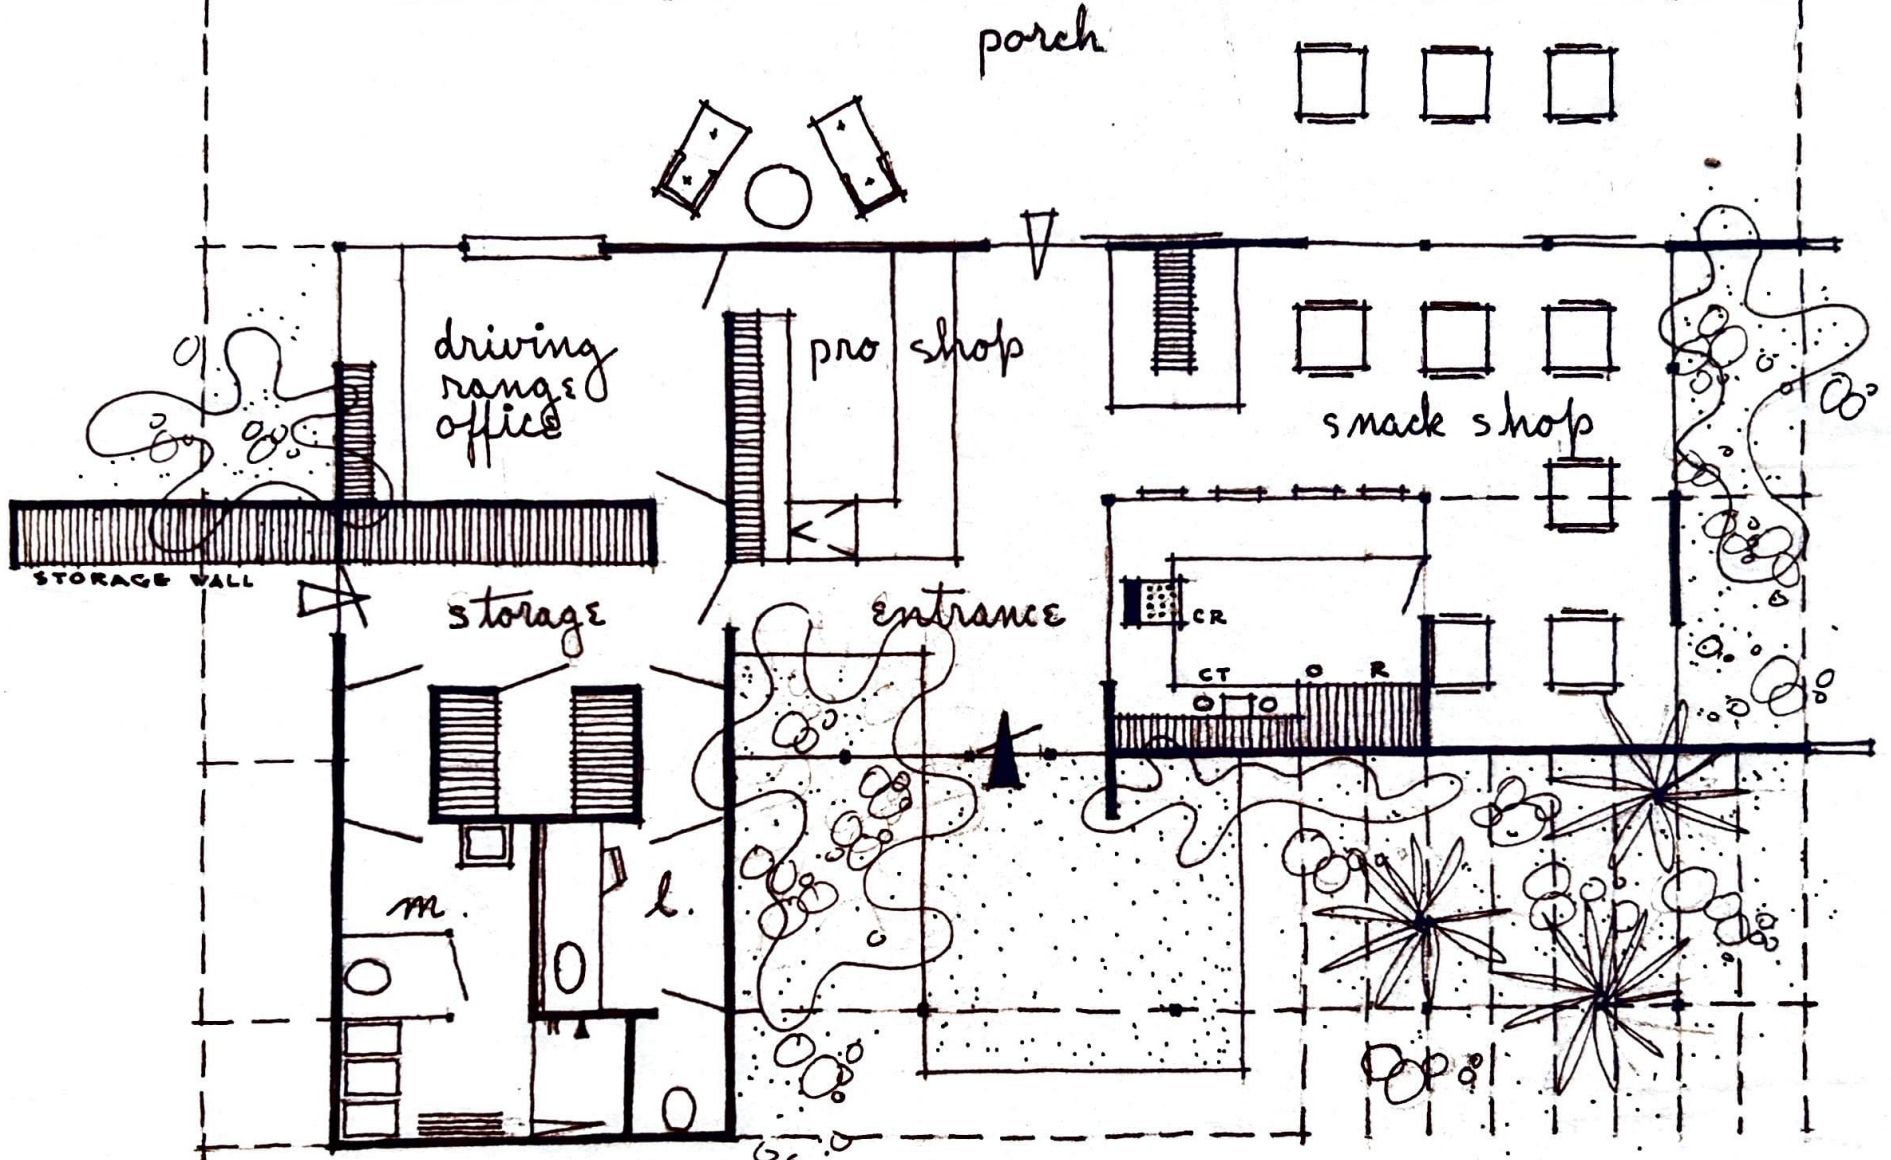 porch
driving
range
office
pro shop
snack shop
STORAGE WALL
storage
entrance
CR
CT
O
R
m.
l.